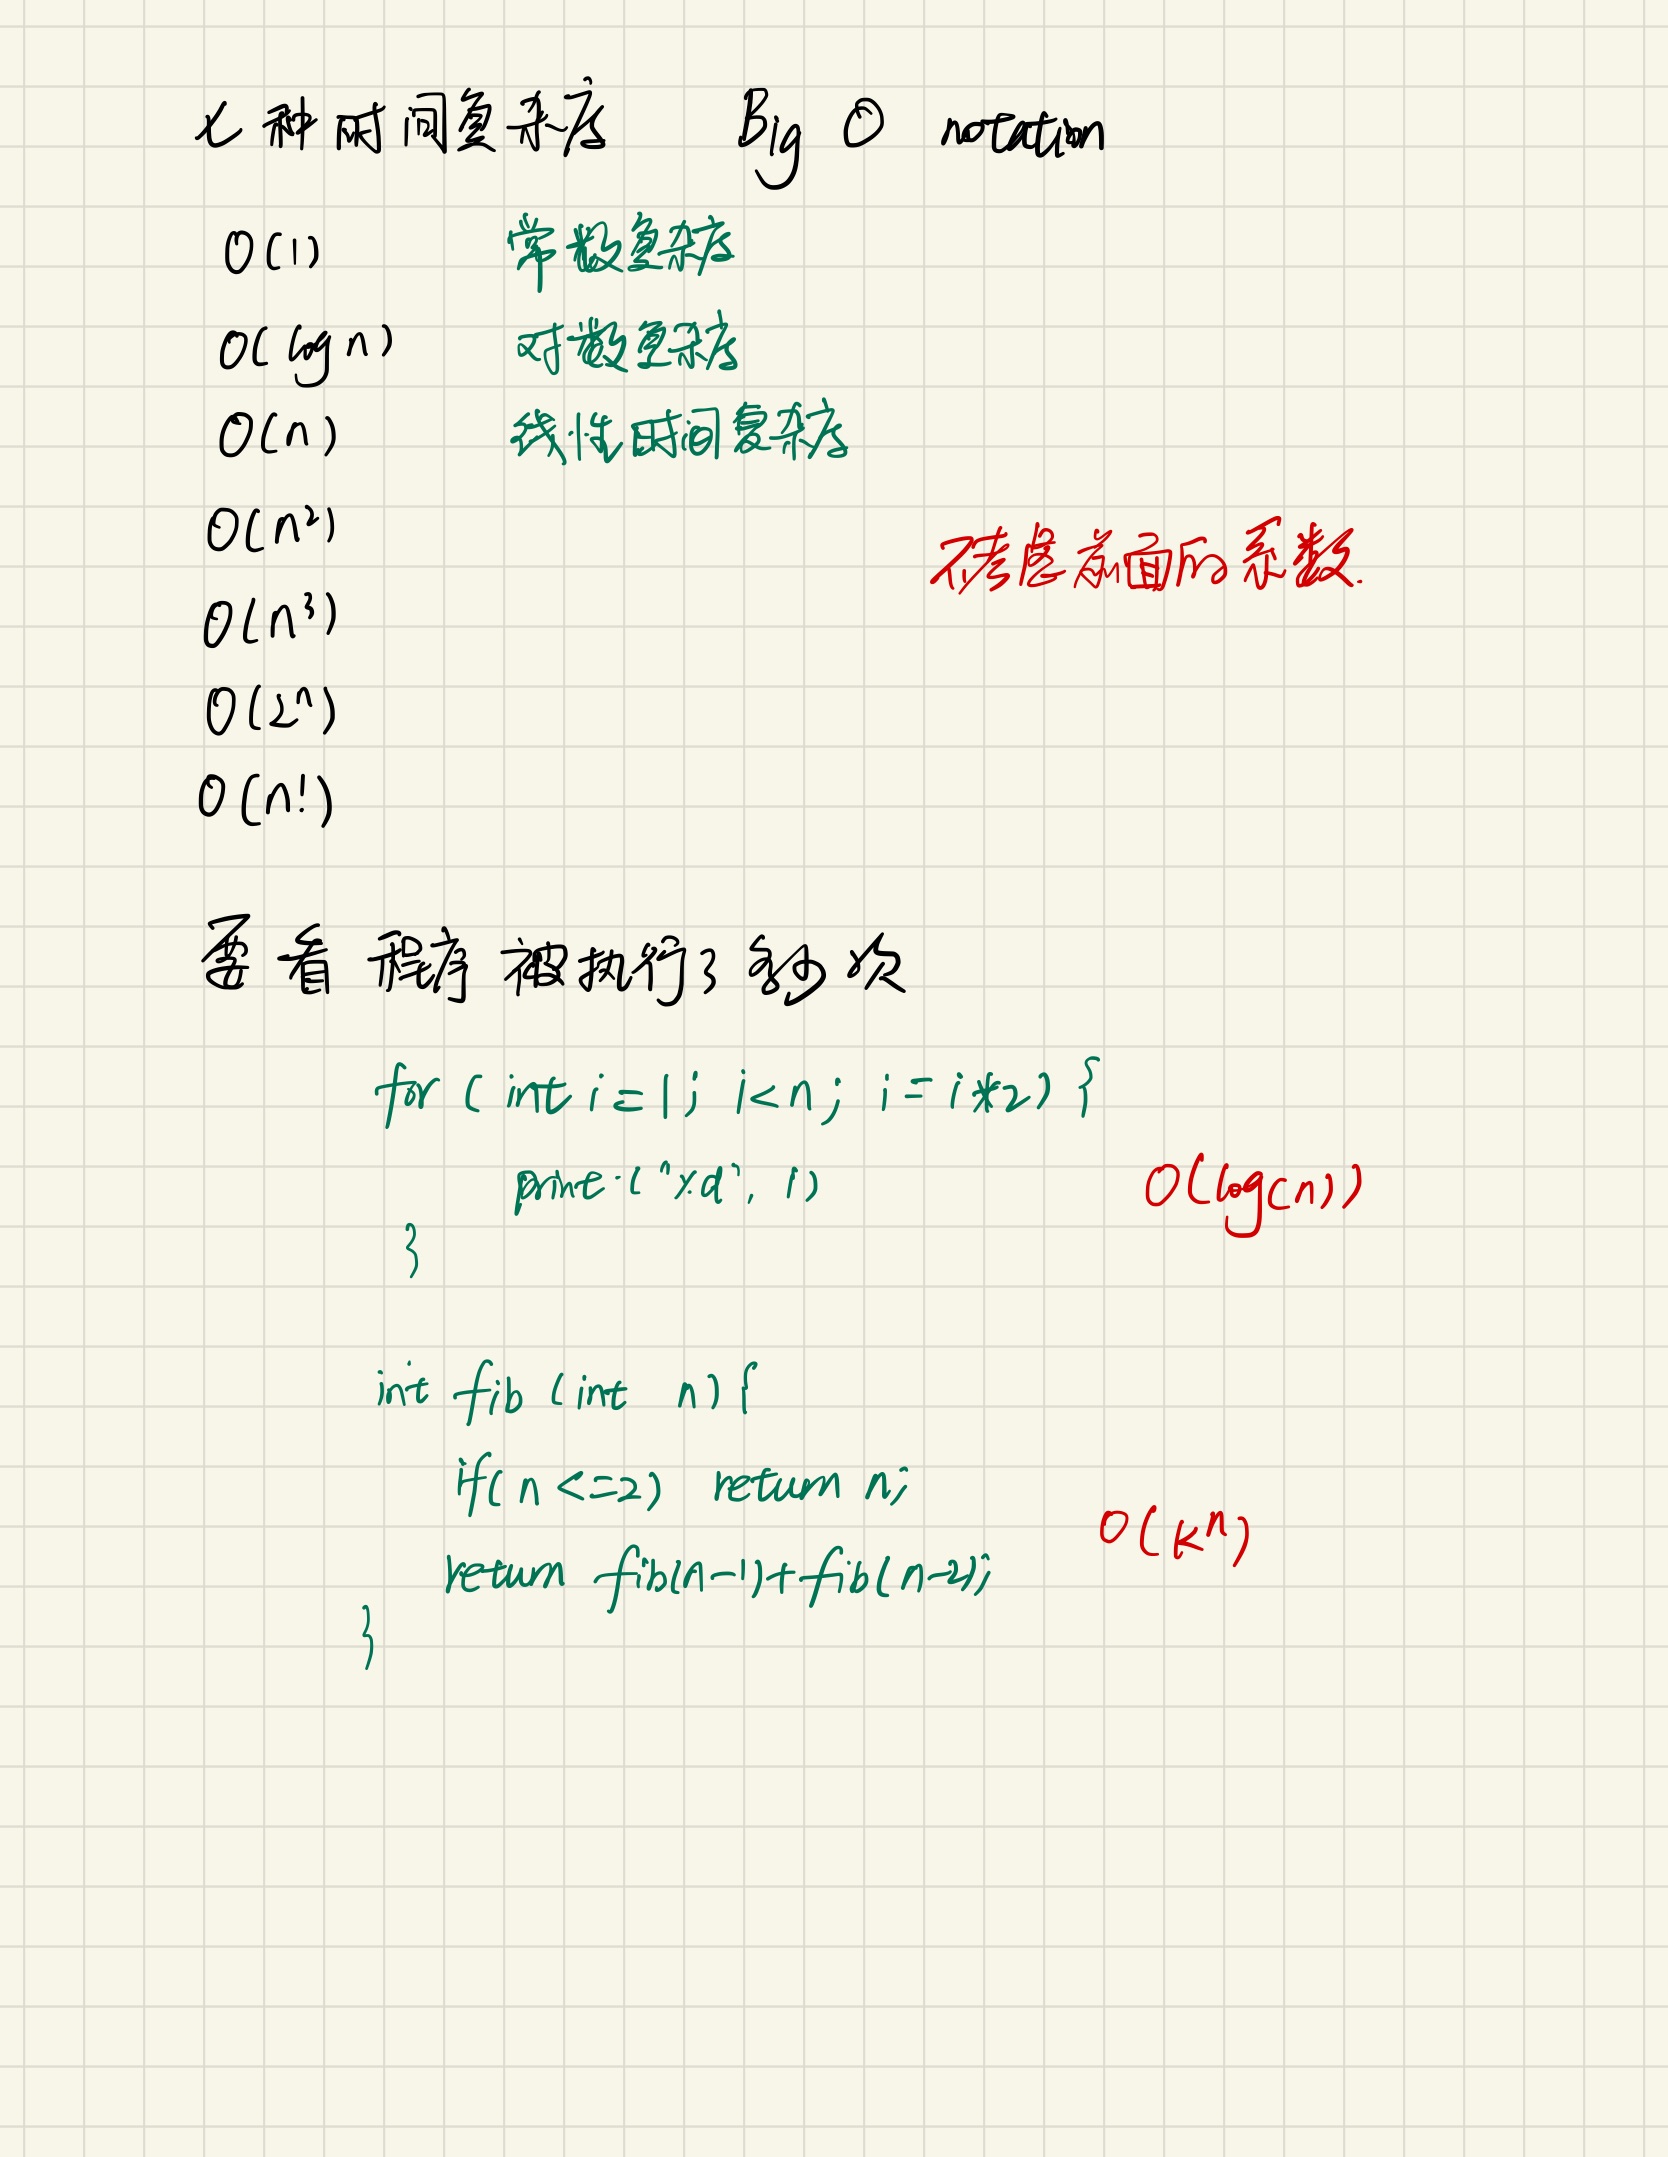 七种时间复杂度 Big O notation
O(1) 常数复杂度
O(log n) 对数复杂度
O(n) 线性时间复杂度
O(n²)
不考虑前面的系数.
O(n³)
O(2ⁿ)
O(n!)
要看程序被执行了多少次
for (int i=1; i<n; i=i*2) {
print("%d", i)
}
O(log(n))
int fib (int n) {
if(n<=2) return n;
return fib(n-1)+fib(n-2);
}
O(kⁿ)